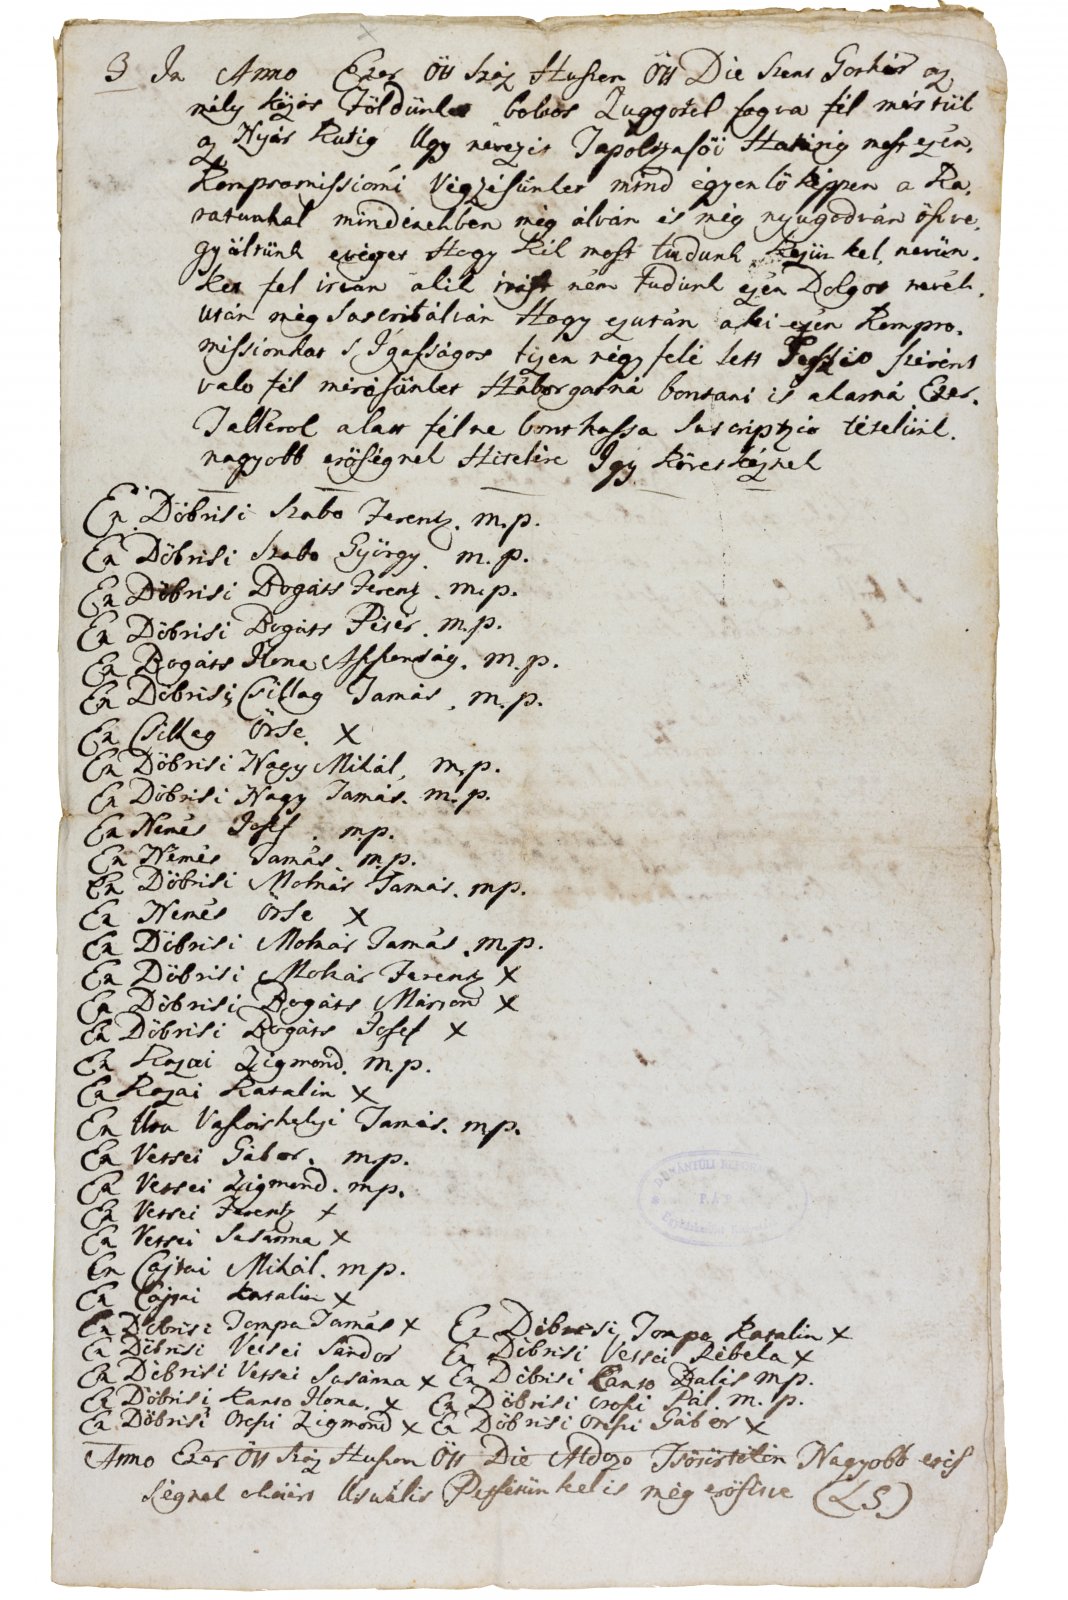 3 In Anno Ezer Ött száz Huszen Ött Die szent Gothár az
mely közös Földünket bokros Zuggotol fogva fél mértül
az Nyás Kutig Ugy nevezis Tapoltzafői Hatarig most ezen,
Kompromissiomi Végzésünket mind egyenlő képpen a Ka,
ratunkal mindenekben meg álván és meg nyugodván öszve,
gyültünk eéget Hogy kik most tudunk kezün kel, nevün,
ket fel irván akik irást nem tudunk ezen Dolgot nevek,
után meg suscribálván Hogy ezután a ki ezen Kompro,
missionkat s Igasságos tizen négy felé lett Fesszio szerént
valo fél mérésünket Háborgatná bontani is akarná Ezer,
Tallérol alatt félne bonthassa suscriptzio tételünk.
nagyobb erőségnek Hitelére Igy következnek
En Döbrisi Szabo Ferentz. m.p.
En Döbrisi Szabo György. m.p.
En Döbrisi Bogáts Ferentz. m.p.
En Döbrisi Bogáts Péter. m.p.
En Bogáts Ilona Aszszonság. m.p.
En Döbrisi Csillag Tamás, m.p.
En Csillag Örse x
En Döbrisi Nagy Mihál, m.p.
En Döbrisi Nagy Tamás. m.p.
En Nemés Josef. m.p.
En Némés Tamás m.p.
En Döbrisi Molnár Tamás. mp.
En Nemés Örse x
En Döbrisi Molnár Tamás, m.p.
En Döbrisi Molnár Ferentz x
En Döbrisi Bogáts Márton x
En Döbrisi Bogáts Josef x
En Kazai Zigmond. m.p.
En Kazai Katalin x
En Ura Vasfoirhelyi Tamás. mp.
En Vetsei Gábor. m.p.
En Vetsei Zigmond. mp.
En Vetsei Ferentz x
En Vetsei Susánna x
En Cajtai Mihál. m.p.
En Cajtai Katalin x
En Döbrisi Tompa Tamás x En Döbrisi Tompa Katalin x
En Döbrisi Vetsei Sándor En Döbrisi Vetsei Rébeka x
En Döbrisi Vetsei Susánna x En Döbrisi Kanto Balis mp.
En Döbrisi Kanto Ilona, x En Döbrisi Orosi Pál. m.p.
En Döbrisi Orosi Zigmond x En Döbrisi Orosi Gábor x
Anno Ezer Ött száz Huszon Ött Die Aldozo Tsötörtökön Nagyobb erős
ségnek okáért Usuális Petsétün kel is meg erősitve (L.S.)
DUNÁNTÚLI REFOR
PÁPA